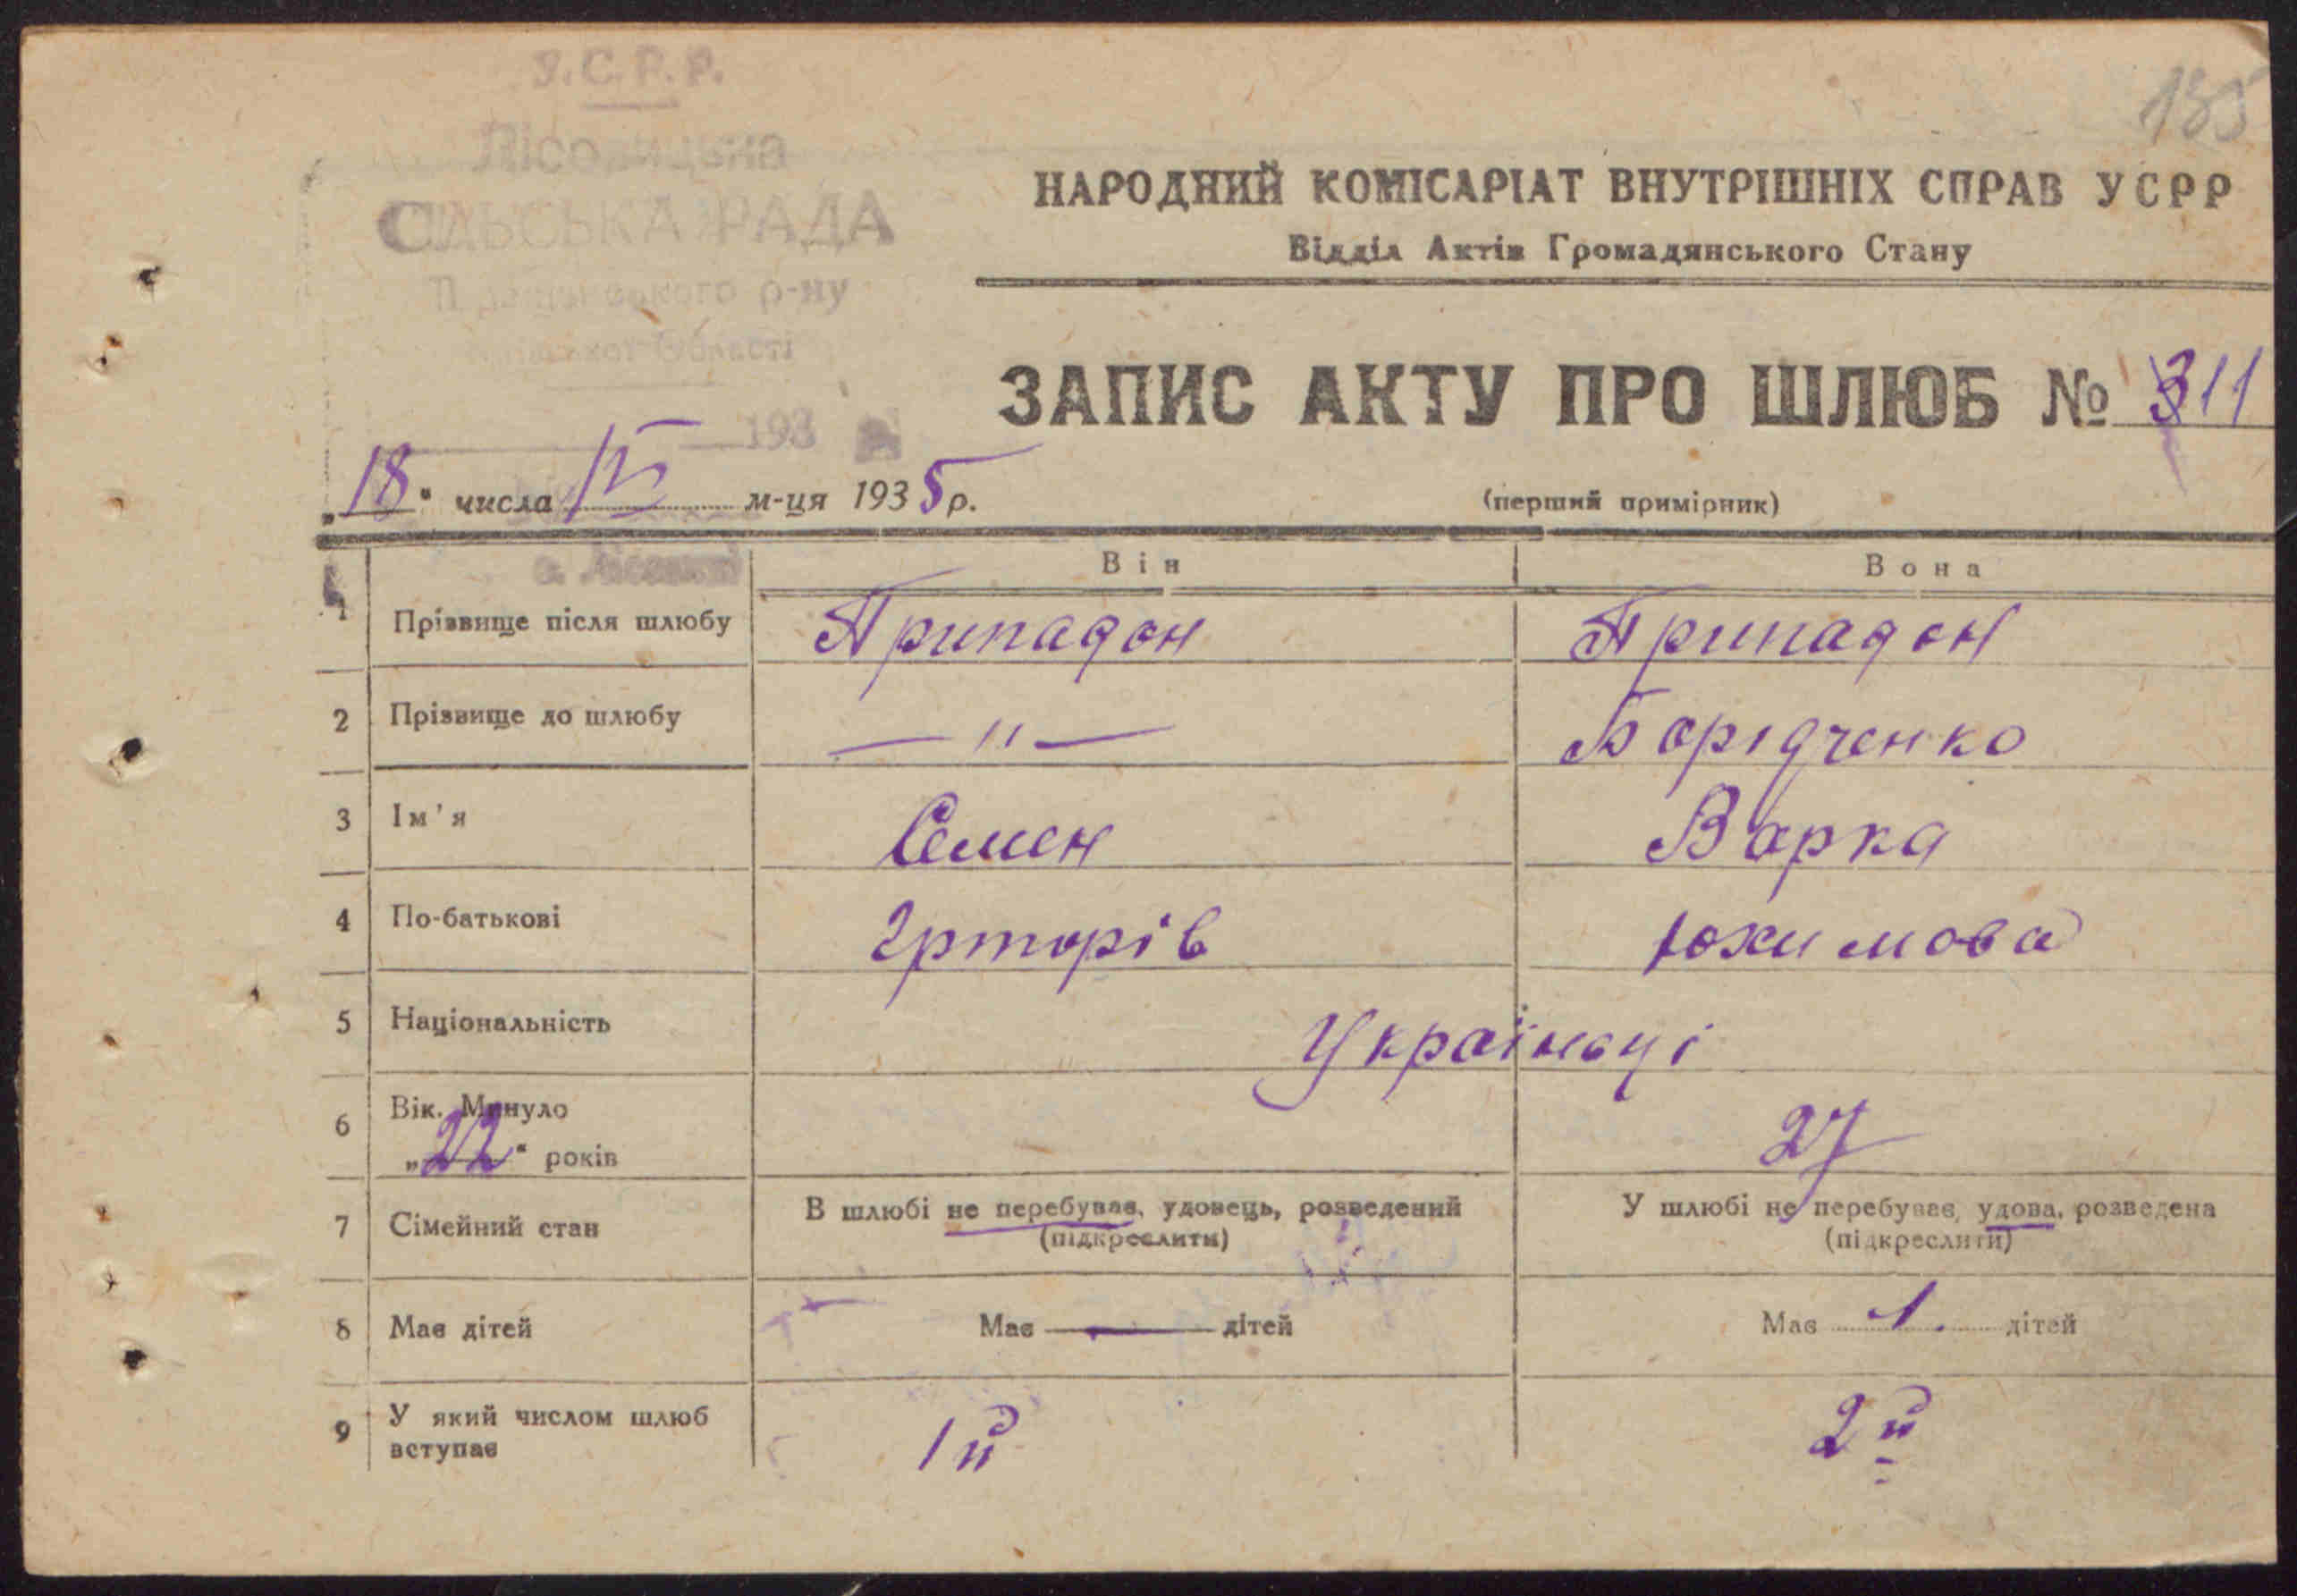 У.С.Р.Р.
СІЛЬСЬКА РАДА
р-ну
Області
193
135
НАРОДНИЙ КОМІСАРІАТ ВНУТРІШНІХ СПРАВ УСРР
Відділ Актів Громадянського Стану
ЗАПИС АКТУ ПРО ШЛЮБ № 311
„18“ числа IV м-ця 1935 р.
(перший примірник)
Він Вона
1 Прізвище після шлюбу Припадон Припадон
2 Прізвище до шлюбу — " — Борідченко
3 Ім'я Семен Варка
4 По-батькові Юхимова
5 Національність Українці
6 Вік. Минуло
„22“ років 27
7 Сімейний стан В шлюбі не перебуває, удовець, розведений У шлюбі не перебуває, удова, розведена
(підкреслити) (підкреслити)
8 Має дітей Має — дітей Має 1. дітей
9 У який числом шлюб вступає 1й 2й